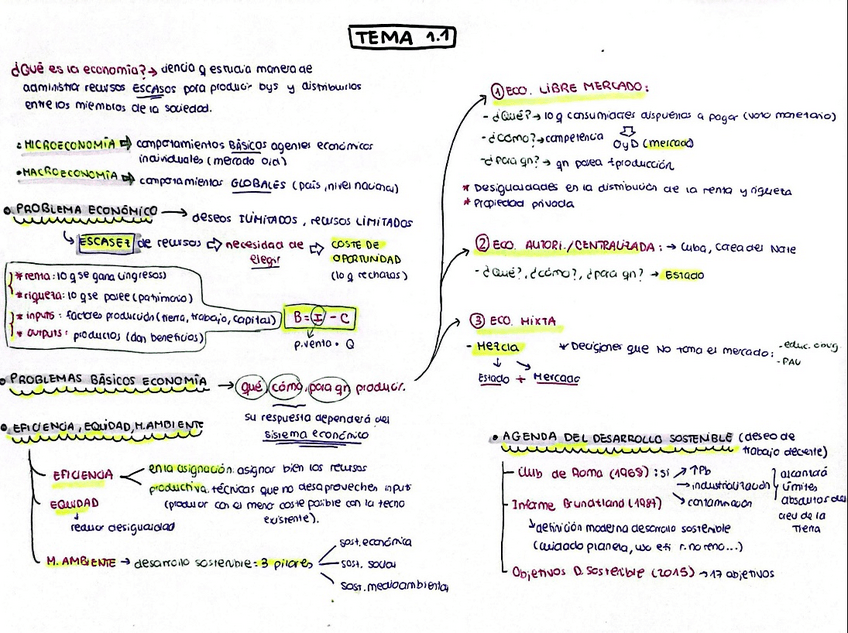 TEMA 1.1
¿Qué es la economía? → ciencia q estudia manera de
administrar recursos ESCASOS para producir bys y distribuirlos
entre los miembros de la sociedad.
• MICROECONOMÍA ⇒ comportamientos BÁSICOS agentes económicos
individuales (mercado
• MACROECONOMÍA ⇒ comportamientos GLOBALES (país, nivel nacional)
• PROBLEMA ECONÓMICO → deseos ILIMITADOS, recursos LIMITADOS
↳ ESCASEZ de recursos ⇒ necesidad de ⇒ COSTE DE
elegir OPORTUNIDAD
(lo q rechazas)
* renta: lo q se gana (ingresos)
* riqueza: lo q se posee (patrimonio)
* inputs: factores producción (tierra, trabajo, capital)
* outputs: productos (dan beneficios)
B = I - C
p.venta · Q
• PROBLEMAS BÁSICOS ECONOMÍA → qué, cómo, para qn producir.
su respuesta dependerá del
sistema económico
• EFICIENCIA, EQUIDAD, M.AMBIENTE
EFICIENCIA
en la asignación: asignar bien los recursos
productiva: técnicas que no desaprovechen inputs
(producir con el menor coste posible con la tecno
existente).
EQUIDAD
↳ reducir desigualdad
M. AMBIENTE → desarrollo sostenible: 3 pilares
sost. económica
sost. social
sost. medioambiental
① ECO. LIBRE MERCADO:
- ¿Qué? → lo q consumidores dispuestos a pagar (voto monetario)
- ¿Cómo? → competencia
OyD (mercado)
- ¿para qn? → qn posea +producción
* Desigualdades en la distribución de la renta y riqueza
* Propiedad privada
② ECO. AUTORI./CENTRALIZADA: → Cuba, Corea del Norte
- ¿Qué?, ¿cómo?, ¿para qn? → Estado
③ ECO. MIXTA
- Mezcla
Estado + Mercado
* Decisiones que NO toma el mercado: - educ. oblig.
- PAU
• AGENDA DEL DESARROLLO SOSTENIBLE (deseo de
trabajo decente)
- Club de Roma (1968): si ↑Pb
→ industrialización
contaminación
alcanzará
límites
absolutos de
la
Tierra
- Informe Brundtland (1987)
↳ definición moderna desarrollo sostenible
(cuidado planeta, uso efi r. no reno...)
- Objetivos D. Sostenible (2015) → 17 objetivos